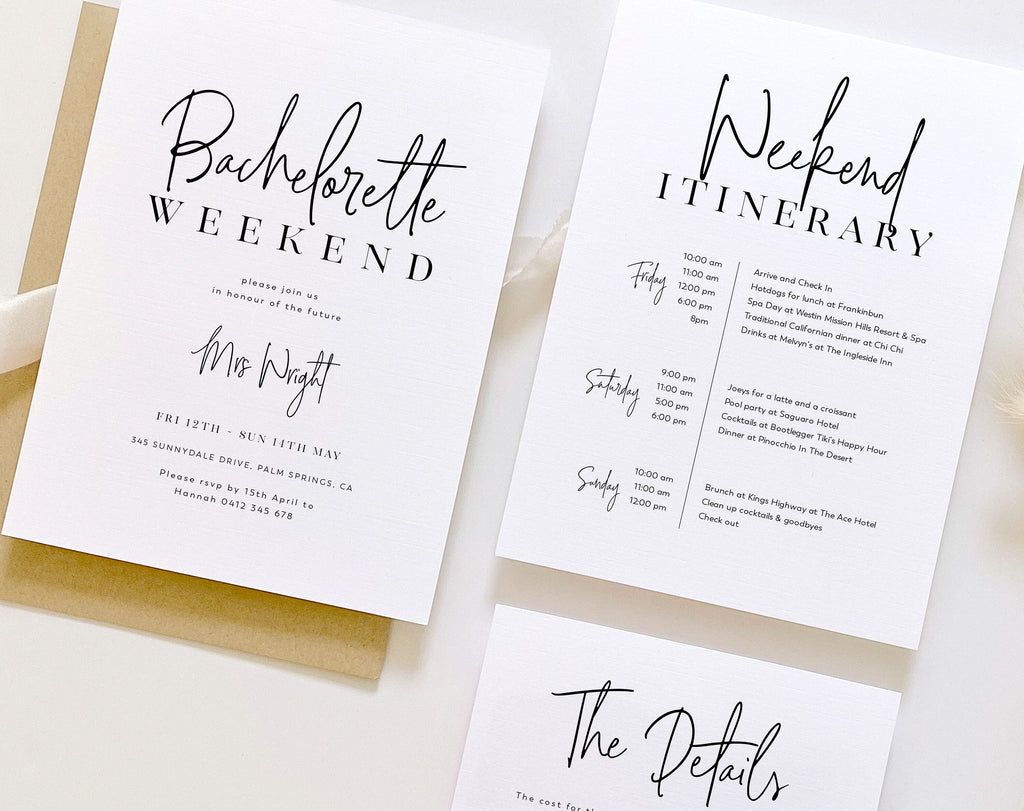 Bachelorette
WEEKEND
please join us
in honour of the future
Mrs Wright
FRI 12TH - SUN 14TH MAY
345 SUNNYDALE DRIVE, PALM SPRINGS, CA
Please rsvp by 15th April to
Hannah 0412 345 678
Weekend
ITINERARY
Friday
10:00 am Arrive and Check In
11:00 am Hotdogs for lunch at Frankinbun
12:00 pm Spa Day at Westin Mission Hills Resort & Spa
6:00 pm Traditional Californian dinner at Chi Chi
8pm Drinks at Melvyn's at The Ingleside Inn
Saturday
9:00 pm Joeys for a latte and a croissant
11:00 am Pool party at Saguaro Hotel
5:00 pm Cocktails at Bootlegger Tiki's Happy Hour
6:00 pm Dinner at Pinocchio In The Desert
Sunday
10:00 am Brunch at Kings Highway at The Ace Hotel
11:00 am Clean up cocktails & goodbyes
12:00 pm Check out
The Details
The cost for